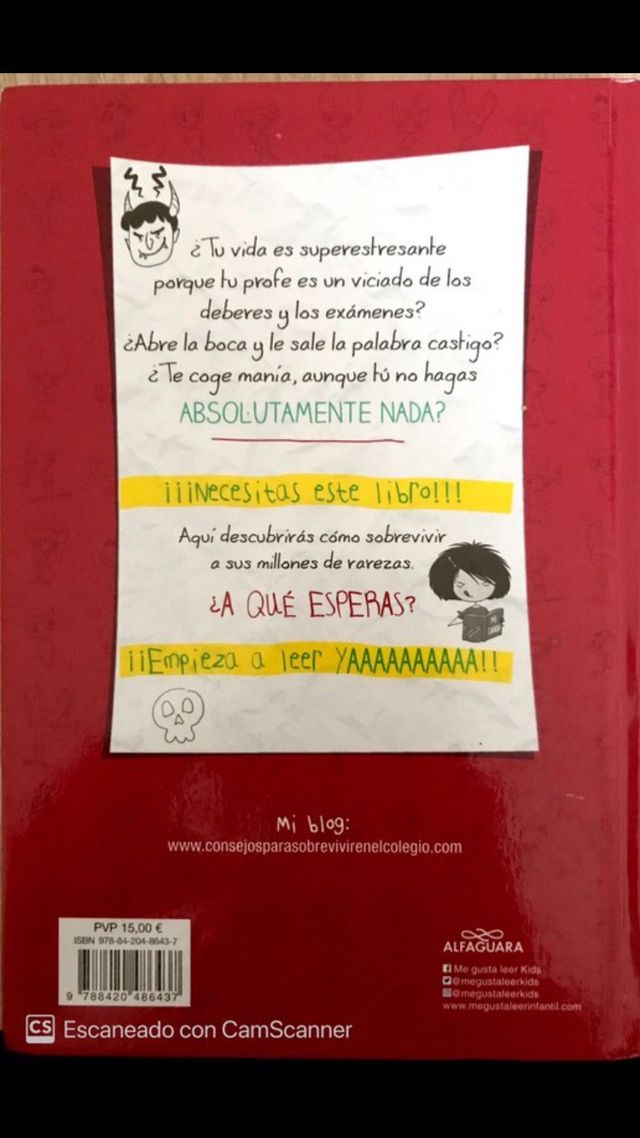 ¿Tu vida es superestresante
porque tu profe es un viciado de los
deberes y los exámenes?
¿Abre la boca y le sale la palabra castigo?
¿Te coge manía, aunque tú no hagas
ABSOLUTAMENTE NADA?
¡¡¡Necesitas este libro!!!
Aquí descubrirás cómo sobrevivir
a sus millones de rarezas.
¿A QUÉ ESPERAS?
¡¡Empieza a leer YAAAAAAAAAA!!
Mi blog:
www.consejosparasobrevivirenelcolegio.com
PVP 15,00 €
ISBN 978-84-204-8643-7
9 788420 486437
ALFAGUARA
Me gusta leer Kids
@megustaleerkids
@megustaleerkids
www.megustaleerinfantil.com
CS Escaneado con CamScanner